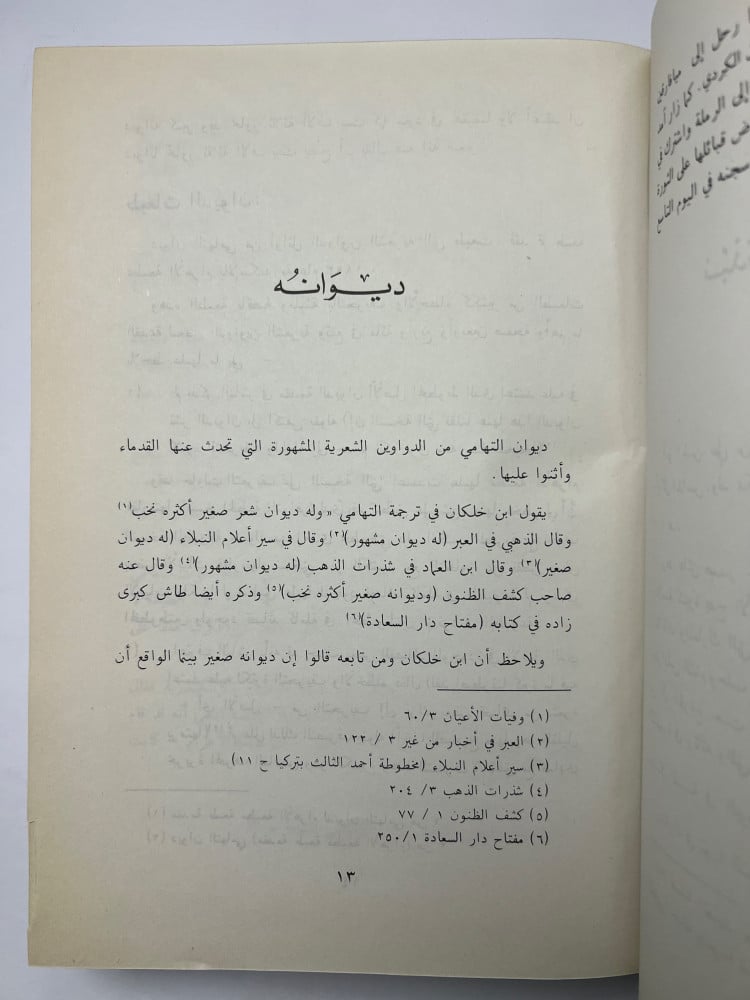 ديـوَانـُه
ديوان التهامي من الدواوين الشعرية المشهورة التي تحدث عنها القدماء
وأثنوا عليها.
يقول ابن خلكان في ترجمة التهامي «وله ديوان شعر صغير أكثره نخب»(١)
وقال الذهبي في العبر (له ديوان مشهور)(٢) وقال في سير أعلام النبلاء (له ديوان
صغير)(٣) وقال ابن العماد في شذرات الذهب (له ديوان مشهور)(٤) وقال عنه
صاحب كشف الظنون (وديوانه صغير أكثره نخب)(٥) وذكره أيضا طاش كبرى
زاده في كتابه (مفتاح دار السعادة)(٦)
ويلاحظ أن ابن خلكان ومن تابعه قالوا إن ديوانه صغير بينما الواقع أن
(١) وفيات الأعيان ٦٠/٣
(٢) العبر في أخبار من غبر ٣ / ١٢٢
(٣) سير أعلام النبلاء (مخطوطة أحمد الثالث بتركيا ح ١١)
(٤) شذرات الذهب ٣/ ٢٠٤
(٥) كشف الظنون ١ / ٧٧
(٦) مفتاح دار السعادة ٢٥٠/١
١٣
رحل إلى ميافارقين
الكردي. كما زار آمد
إلى الرملة واشترك في
قبائلها على الثورة
سجنه في اليوم التاسع